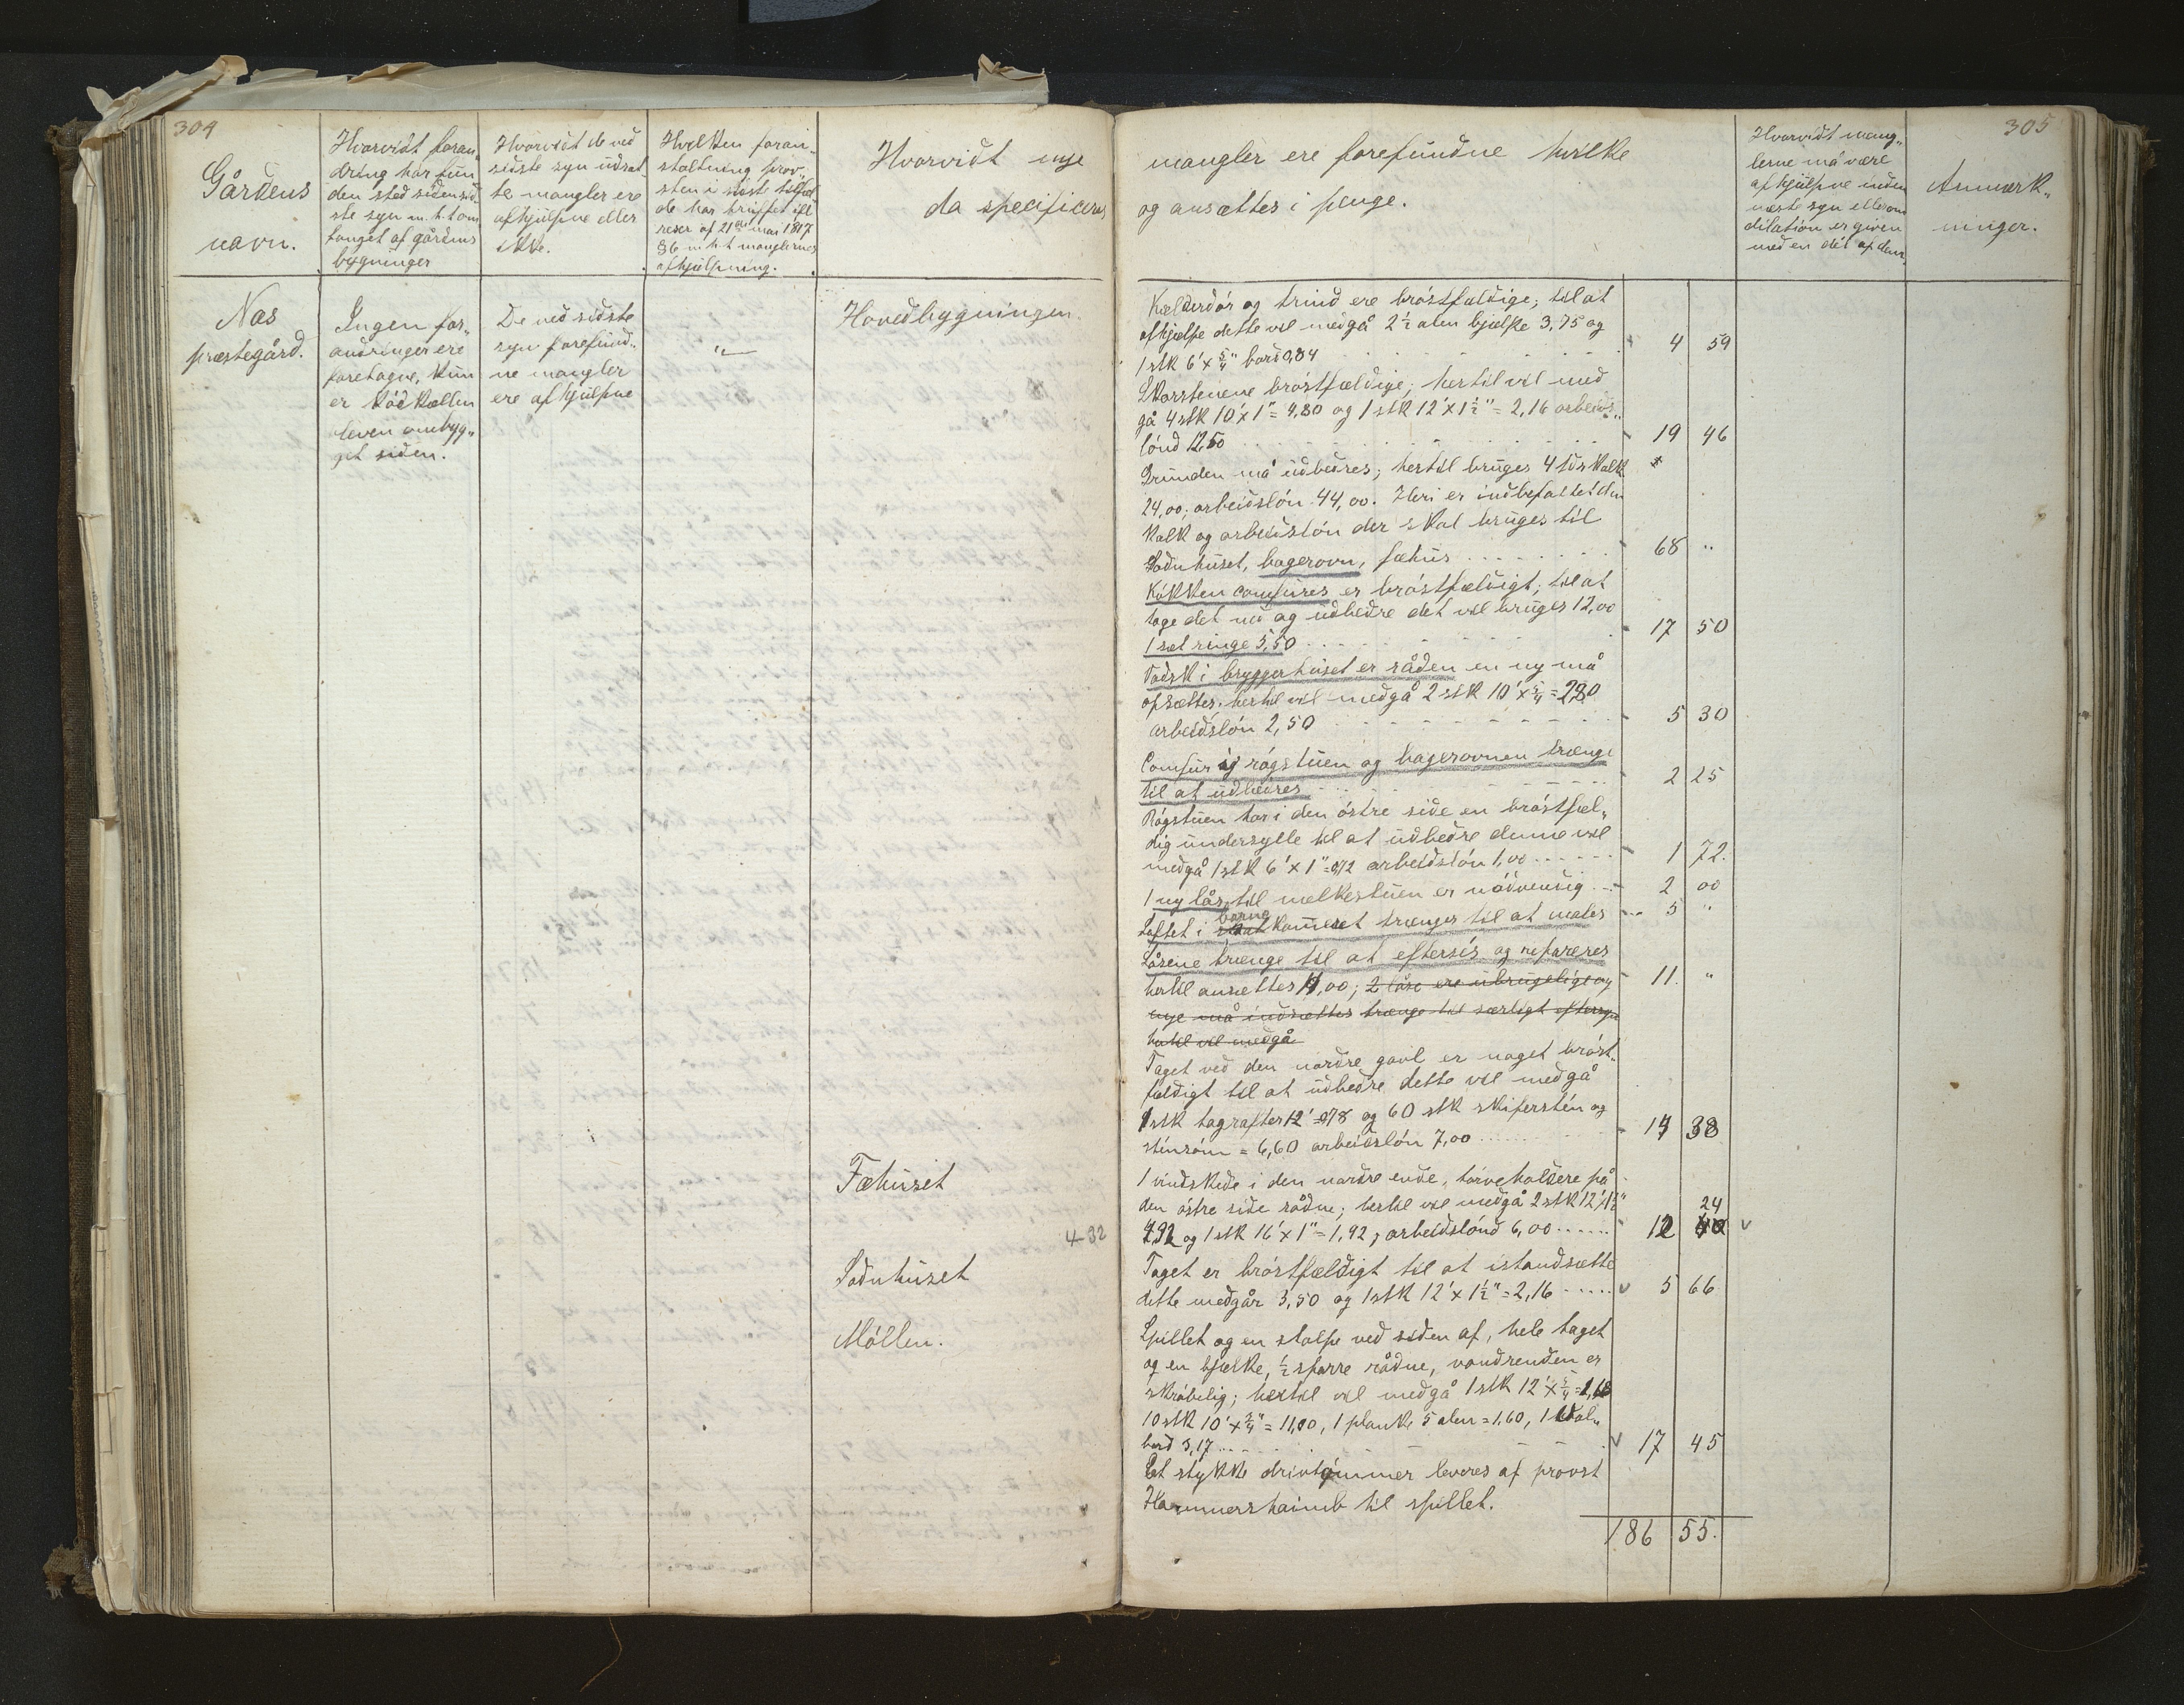 304
Gårdens
navn.
Hvorvidt foran„
dring har fun
den sted siden sid„
ste syn m. h. t. om
fanget af gårdens
bygninger
Hvorvidt de ved
sidste syn udsat
te mangler ere
afhjulpne eller
ikke.
Hvilken foran„
staltning prov„
sten i sidste tilfæl
de har truffet ifl
reser af 21de mai 1817
§ 6 m. h. t manglernes
afhjulpning.
Hvorvidt nye
da specificeres
Nes
præstegård.
Ingen for„
andringer ere
foretagne, kun
er kødkællen
bleven ombyg„
get siden.
De ved sidste
syn forefund„
ne mangler
ere afhjulpne
"
Hovedbygningen.
Fæhuset
4-32
Sodnhuset
Møllen.
305
mangler ere forefundne hvilke
og ansættes i penge.
Hvorvidt mang„
lerne må være
afhjulpne inden
næste syn eller om
dilation er given
med en dél af dem.
Anmærk„
ninger.
Kælderdør og trind ere brøstfældige; til at
afhjælpe dette vil medgå 2 1/2 alen bjælke 3,75 og
1 stk 6' x 5/4" bord 0,84 4 59
Skorstenene brøstfældige; hertil vil med
gå 4 stk 10' x 1" = 4,80 og 1 stk 12' x 1 1/2" = 2,16 arbeids„
lønd 12,50 19 46
Grunden må udbedres; hertil bruges 4 tdr kalk
24,00; arbeidsløn 44,00. Heri er indbefattet den
kalk og arbeidsløn der skal bruges til
Sodnhuset, bagerovn, fæhus 68 "
Køkken comfures er brøstfældigt; til at
tage det ned og udbedre det vil bruges 12,00
1 sæt ringe 5,50 17 50
Vadsk i bryggerhuset er råden en ny må
opsættes. hertil vil medgå 2 stk 10' x 5/4 = 2,80
arbeidsløn 2,50 5 30
Comfur i røgstuen og bagerovnen trænge
til at udbedres 2 25
Røgstuen har i den østre side en brøstfæl„
dig undersylle til at udbedre denne vil
medgå 1 stk 6' x 1" = 0,72 arbeidsløn 1,00 1 72.
1 ny lås til melkestuen er nødvendig 2 00
barne
Loftet i kammeret trænger til at males 5 "
Låsene trænge til at eftersés og repareres
hertil ansættes 11,00; 2 låse ere ubrugelige og 11. "
nye må indsættes trænge til særligt eftersyn
hertil vil medgå
Taget ved den nordre gavl er noget brøst„
fældigt til at udbedre dette vil medgå
1 stk tagrafter 12' = 0,78 og 60 stk skifersten og
stensøm = 6,60 arbeidsløn 7,00 14 38
1 vindskede i den nordre ende, tørveholdere på
den østre side rådne; hertil vil medgå 2 stk 12' 1 1/2" 24
4,32 og 1 stk 16' x 1" = 1,92, arbeidslønd 6,00 12 40
Taget er brøstfældigt til at istandsætte
dette medgår 3,50 og 1 stk 12' x 1 1/2" = 2,16 5 66
Spillet og en stolpe ved siden af, hele taget
og en bjælke, 1/2 sparre rådne, vandrenden er
skrøbelig; hertil vil medgå 1 stk 12' x 5/4 = 1,68
10 stk 10' x 3/4" = 11,00, 1 planke 5 alen = 1,60, 1
bord 3,17 17 45
Et stykke drivtømmer leveres af provst
Hammershaimb til spillet.
186 55.